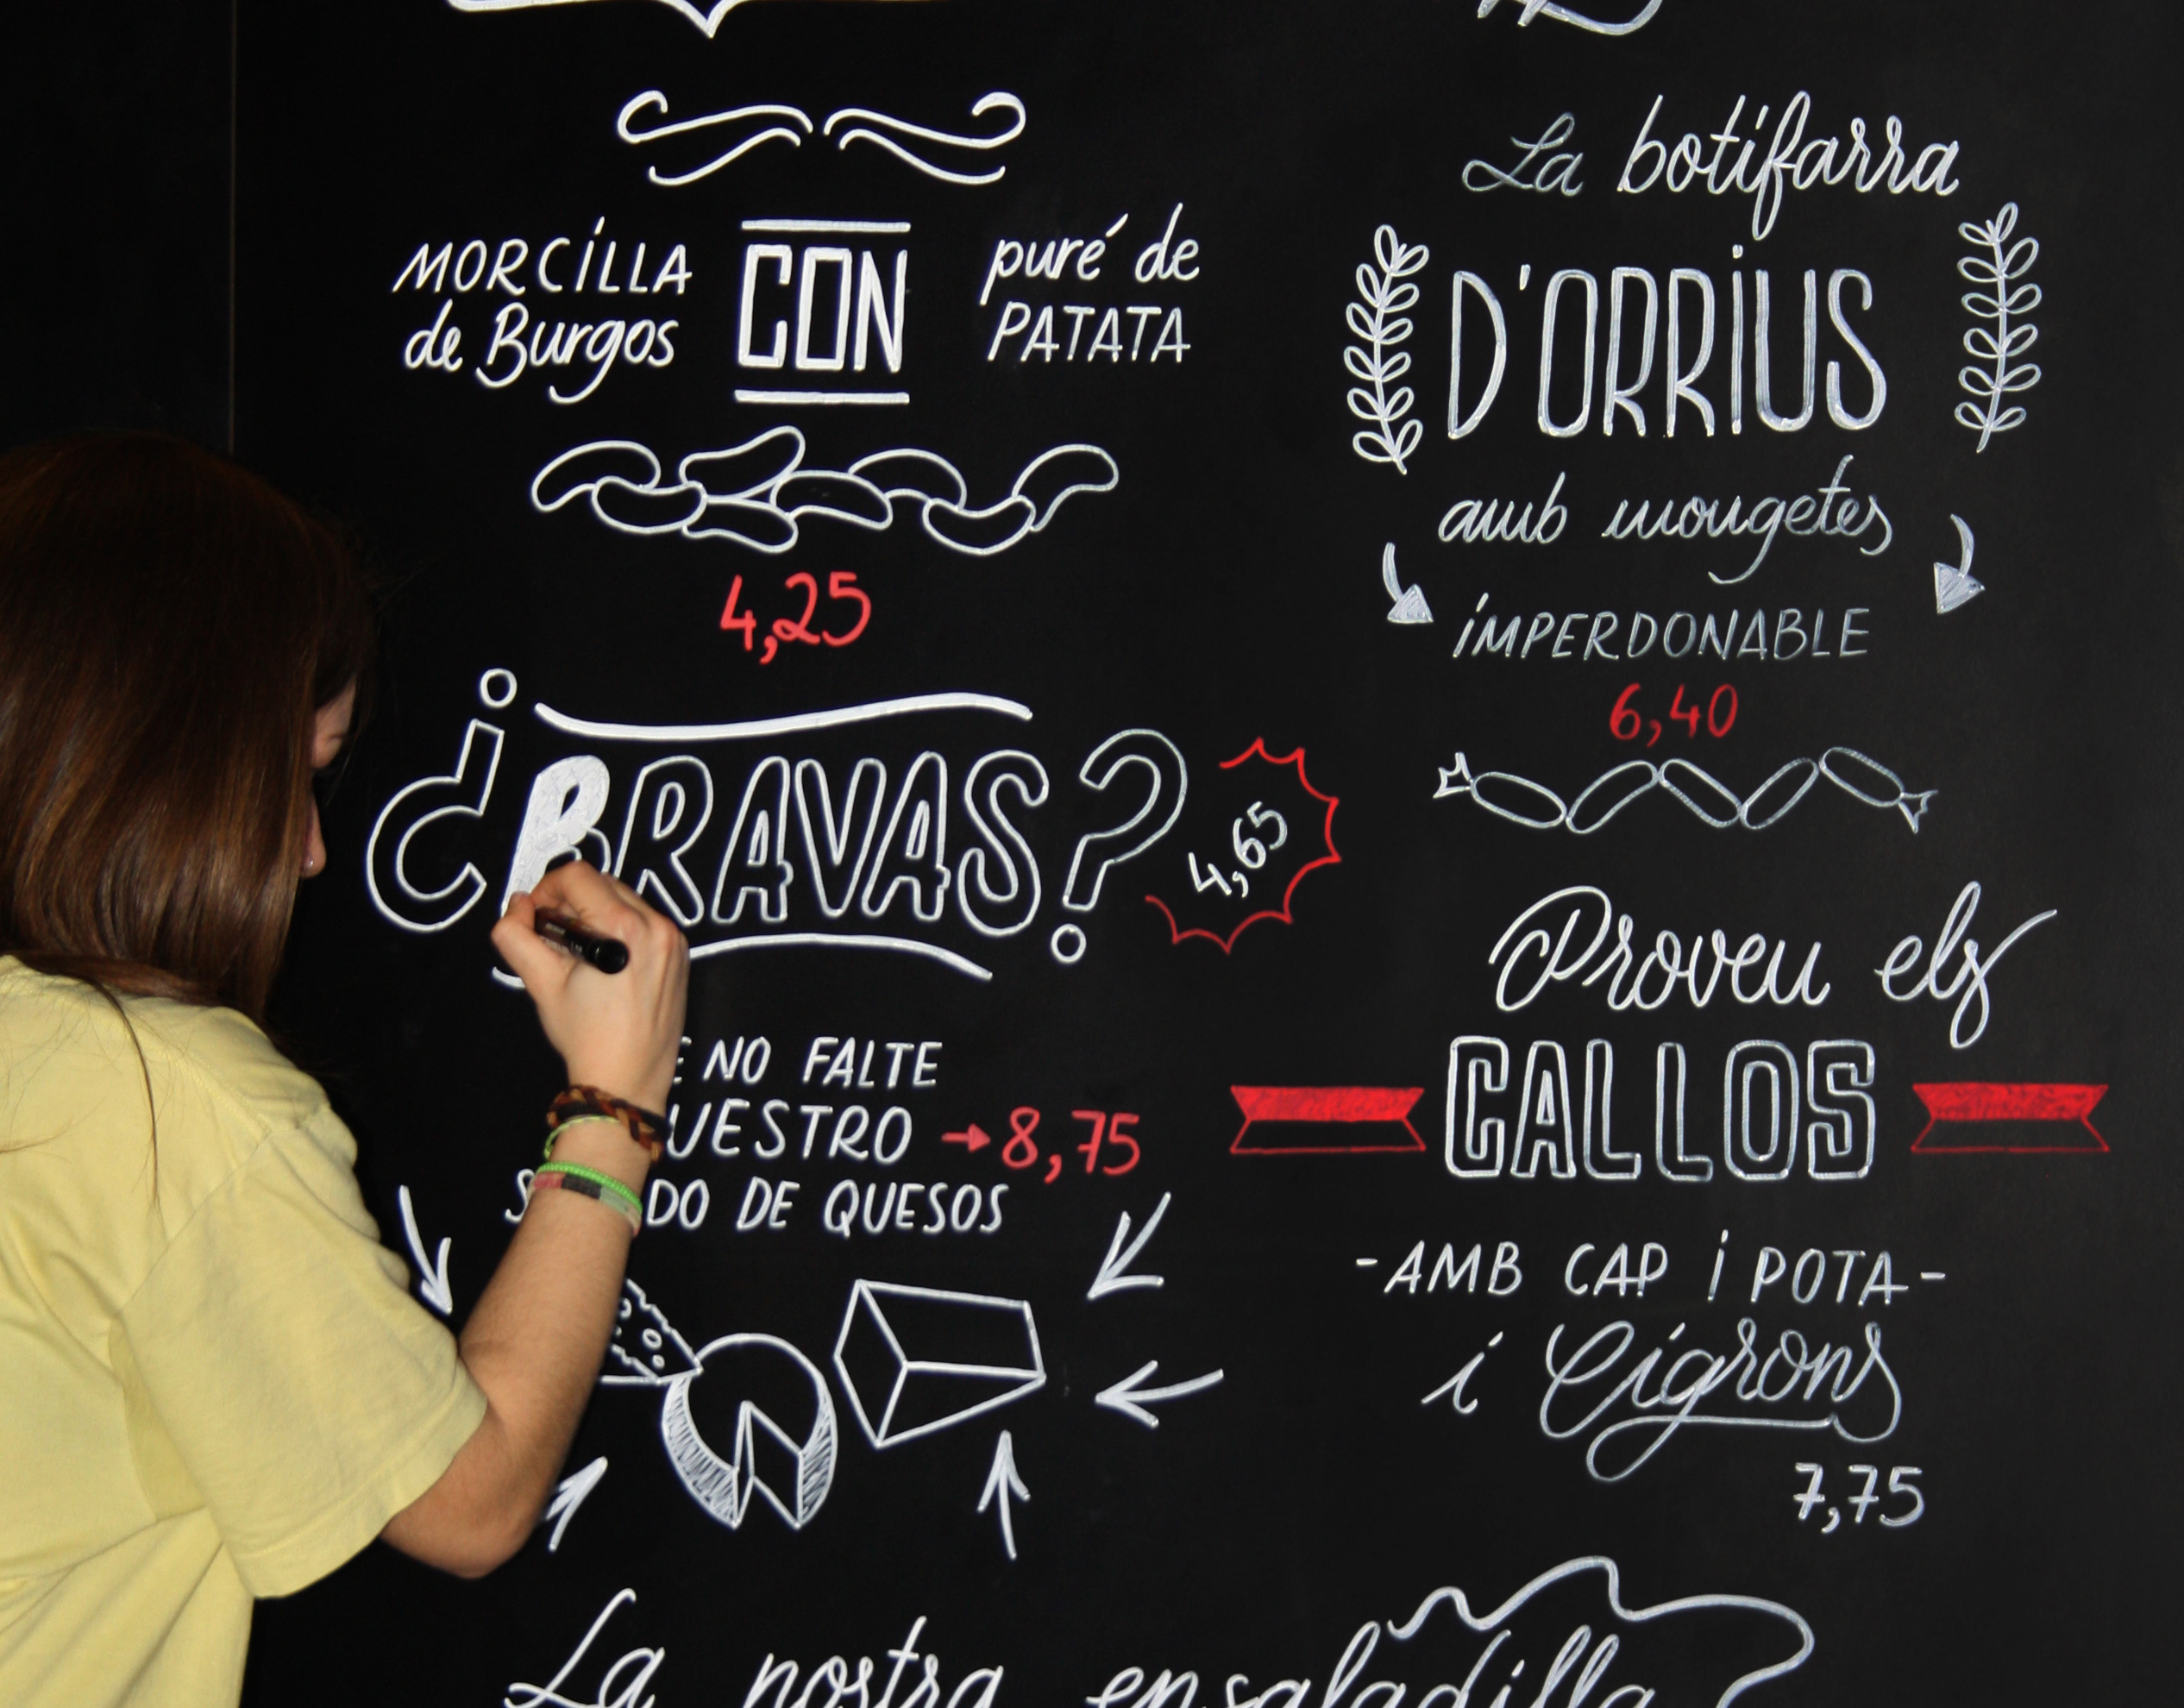 MORCILLA
de Burgos
CON
puré de
PATATA
4,25
¿BRAVAS?
4,65
NO FALTE
→ 8,75
DE QUESOS
La botifarra
D'ORRIUS
amb mougetes
IMPERDONABLE
6,40
Proveu els
CALLOS
-AMB CAP i POTA-
i Cigrons
7,75
La nostra ensaladilla